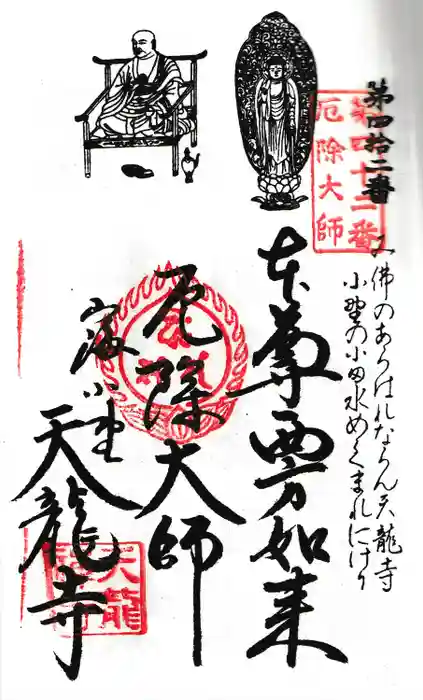 第四拾二番
第四十二番
厄除大師
佛のあらはれならん天龍寺
小野の小田水めぐまれにけり
本尊
如来
厄除大師
小野
天龍寺
天龍